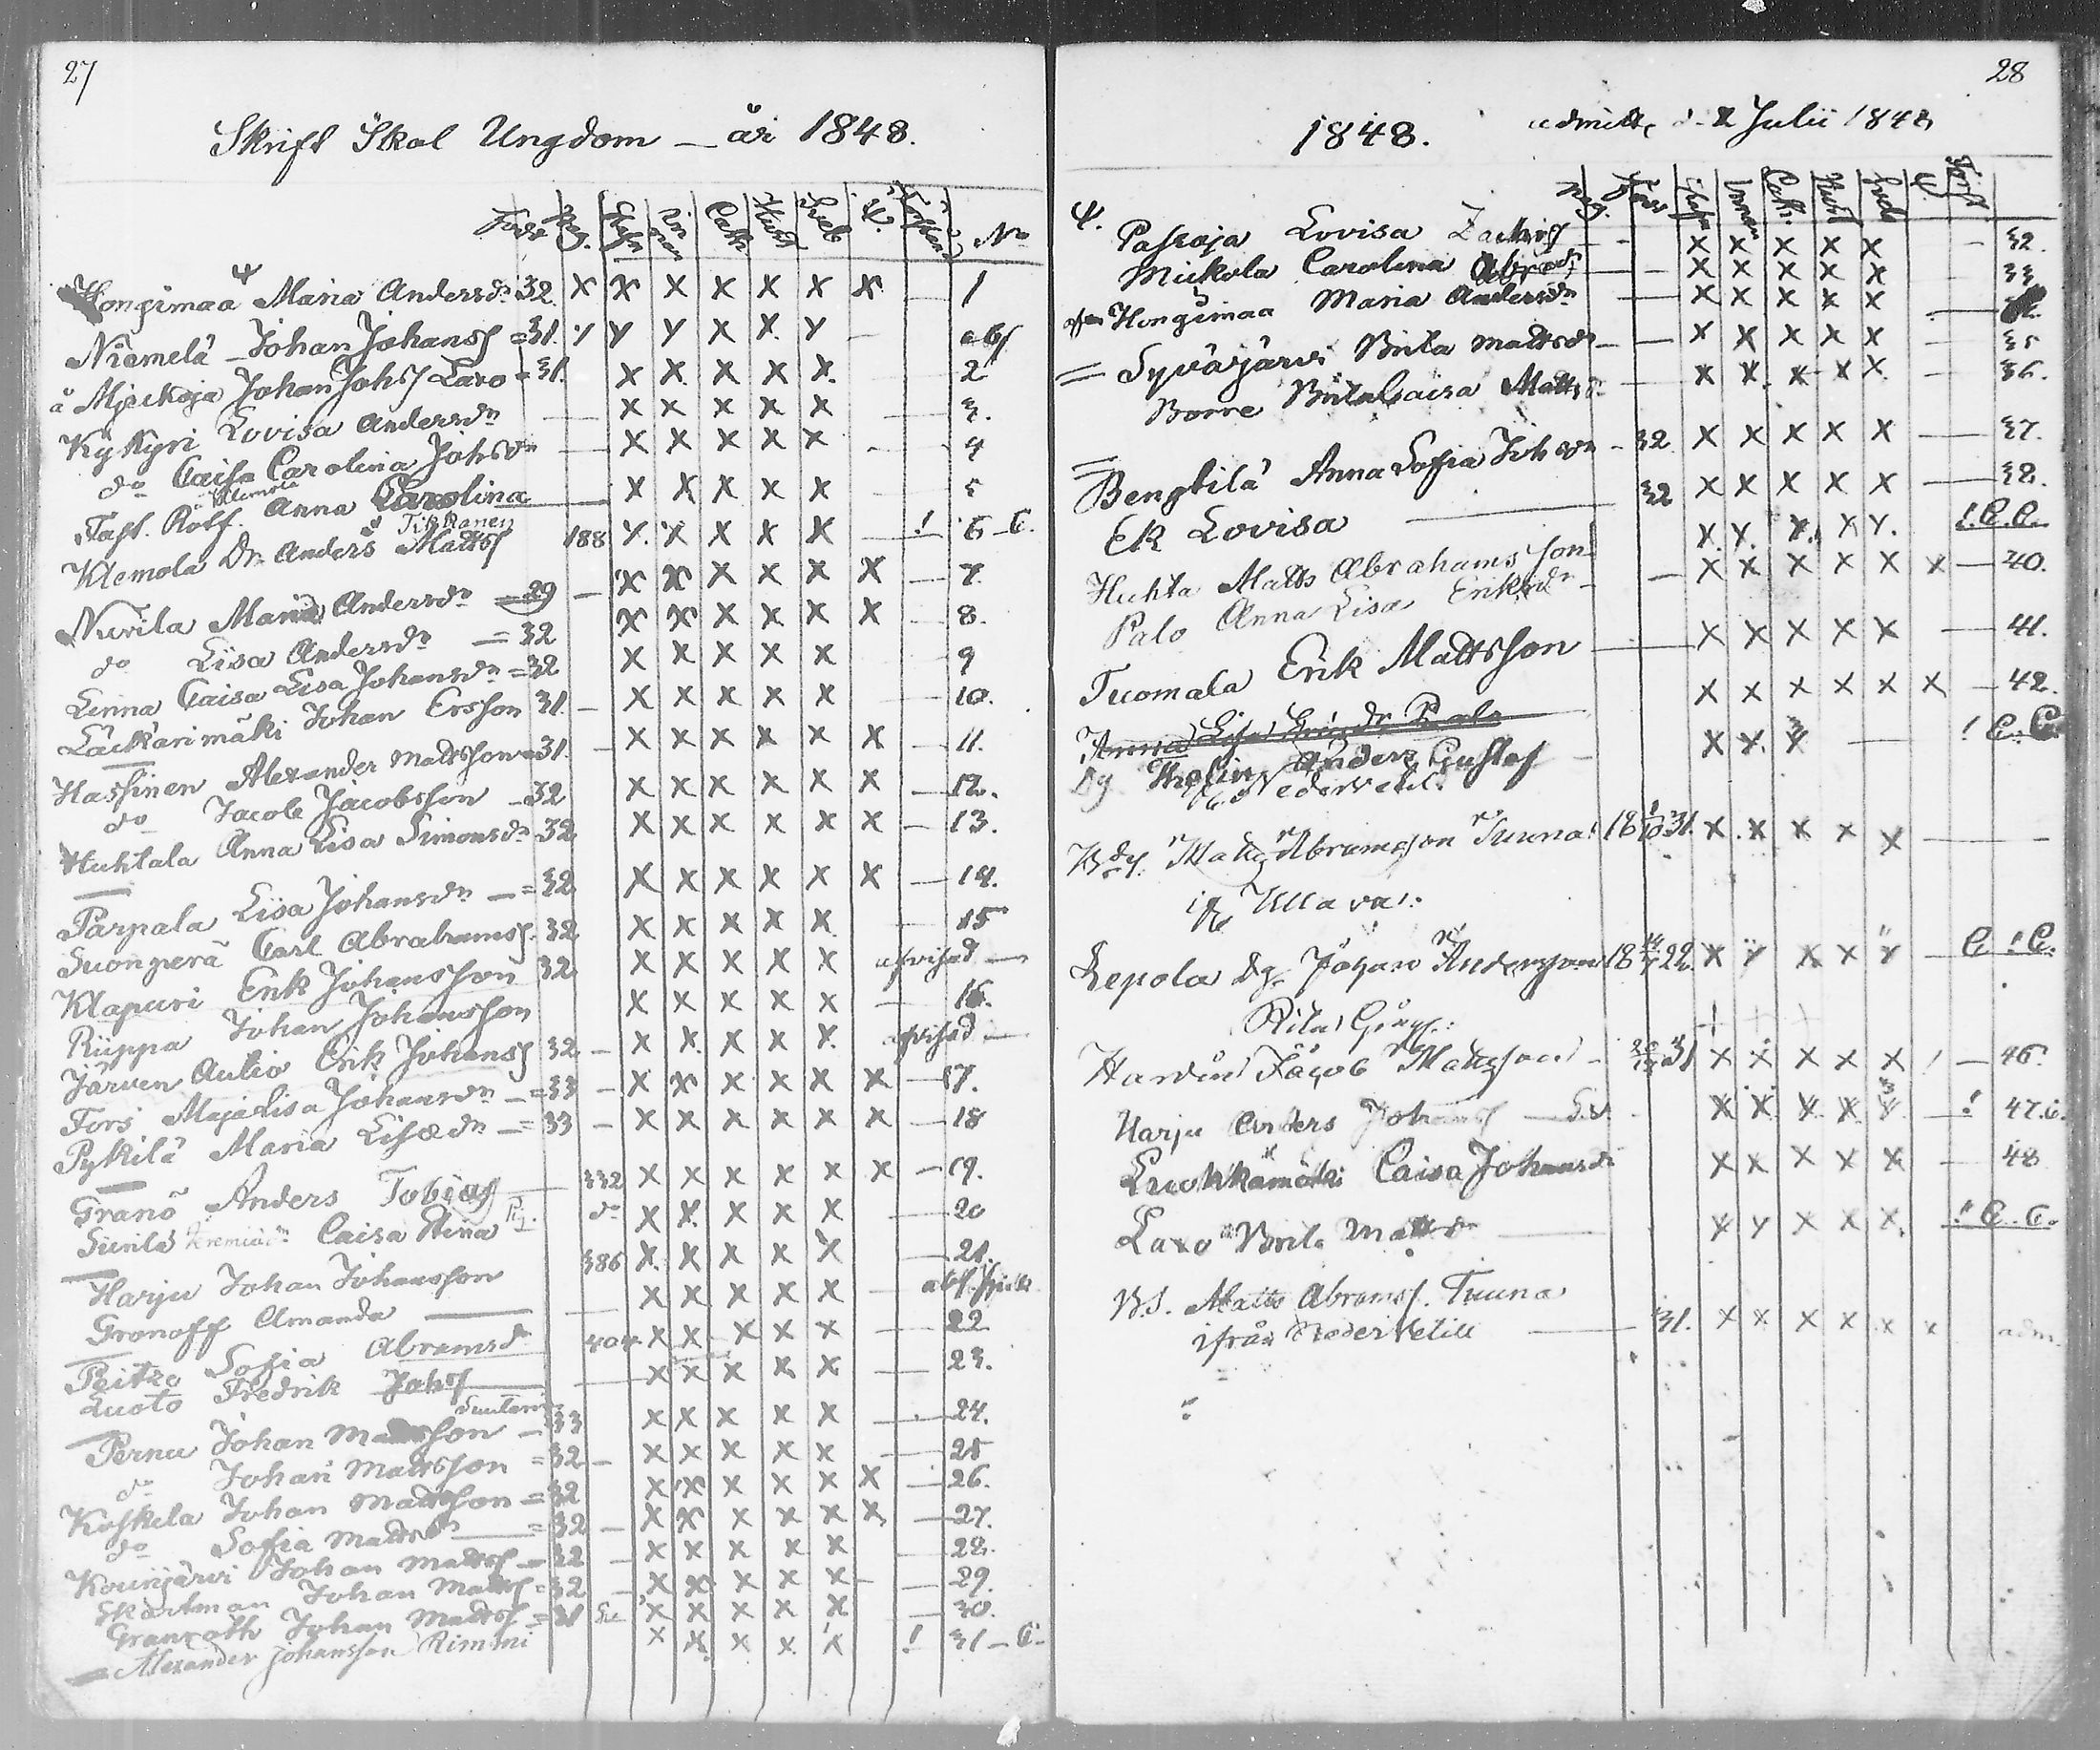 27
Skrift Skol Ungdom — år 1848.
Född Pag. Cath Hust No
Hongimaa Maria Andersdr 32 X X X X X X X — 1
Niemelä — Johan Johanss = 31. y y y X X y — abs
å Mjeckoja Johan Johss Laxo = 31. X X X X X 2
Kykyri Lovisa Andersdr — X X X X X — 3.
do Caisa Carolina Johsdr — X X X X X - 4
Anna Carolina — X X X X X 5
Klemola Dr. Anders Mattss Tikkanen 188 X X X X X — ! 6 - C.
Nurila Maria Andersdr = 29 — X X X X X X — 7.
do Lisa Andersdr = 32 X X X X X X — 8.
Linna Caisa Lisa Johansdr = 32 X X X X X 9
Läckärimäki Johan Ersson 31. — X X X X X — 10.
Hassinen Alexander Mattsson = 31. — X X X X X X — 11.
do Jacob Jacobsson — 32 X X X X X X — 12.
Huhtala Anna Lisa Simonsdr 32 X X X X X X — 13.
Parpala Lisa Johansdr — = 32 X X X X X X — 14.
Suonperä Carl Abrahamss. 32 X X X X X — 15
Klapuri Erik Johansson 32 X X X X X afvisad —
Riippa Johan Johansson X X X X X — 16.
Järven Autio Erik Johanss 32 — X X X X X afvisad —
Fors Maja Lisa Johansdr — = 33 — X X X X X X — 17.
Pykilä Maria Lisæ dr — = 33 — X X X X X X — 18
Granö Anders Tobiass 332 X X X X X X — 19.
Caisa Stina Pig. do X X X X X — 20
Harju Johan Johansson 386 X X X X X — 21.
Gronoff Amanda — X X X X X — abs.
Peitzo Sofia Abramsdr 404 X X X X X — 22
Luoto Fredrik Johss — X X X X X — 23.
Pernu Johan Mattsson — 33 X X X X X — 24.
do Johan Mattsson = 32 — X X X X X — 25
Koskela Johan Mattsson = 32 X X X X X X — 26.
do Sofia Mattsdr — = 32 — X X X X X X — 27.
Johan Mattss — 32 — X X X X X — 28.
Skartman Johan Mattss = 32 — X X X X X — 29.
Granroth Johan Mattss = 31 X X X X X — 30.
Alexander Johansson Rimmi X X X X X ! 31 — C.
28
1848. admitt. d. 2 Julii 1848
Pag. Född Cath. Hust
Ψ. Pasoja Lovisa Zachriss — X X X X X — 32.
Mickola Carolina Abra — X X X X X 33
Hongimaa Maria Andersdr — X X X X X —
= Syväjärvi Brita Mattsdr — X X X X X — 35
Borre Brita Caisa Mattsdr — X X X X X — 36.
Bengtilä Anna Sofia Johsdr — 32 X X X X X — 37.
Ek Lovisa — 32 X X X X X — 38.
Huhta Matts Abrahamsson X X X X X !. C. C.
Palo Anna Lisa Eriksdr — X X X X X X — 40.
Tuomala Erik Mattsson — X X X X X — 41.
Anna Lisa Ers dr Palo X X X X X X — 42.
Dg Anders Gustaf — X X X — ! C. C.
Nedervetil.
Matts Abramsson Tuuna 18 1/10 31. X X X X X —
ifr. Ullava.
Lepola Dg. Johan Andersson 18 22. X X X X X C ! C.
Jacob Mattsson — 31 X X X X X — 46.
Harju Anders Johanss — X X X X X — ! 47. C.
Luohkamäki Caisa Johansdr X X X X X — 48
Laxo Brita Mattsdr — X X X X X ! C. C.
Matts Abramss. Tuuna
ifrån Nedervetill — 31. X X X X X X adm.